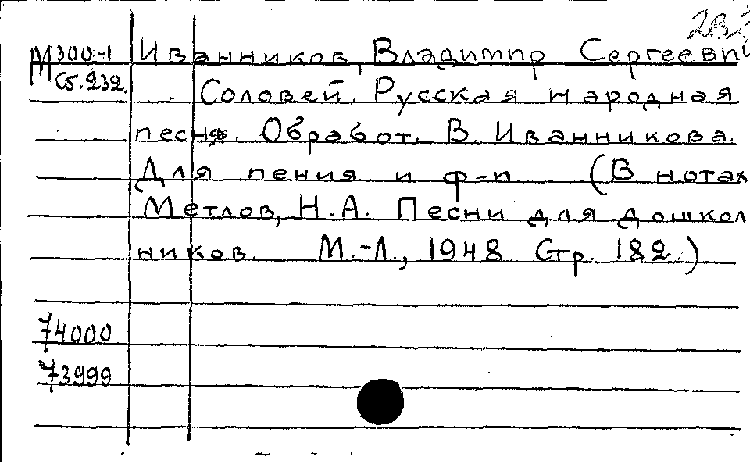 М 300-1 Иванников, Владимир Сергеевич
Сб. 232 Соловей. Русская народная
песня. Обработ. В. Иванникова.
Для пения и ф-п (В нотах
Метлов, Н.А. Песни для дошколь
ников. М.-Л., 1948 Стр. 182.)
74000
73999